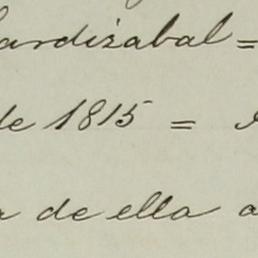 ardizabal =
de 1815 =
de ella a